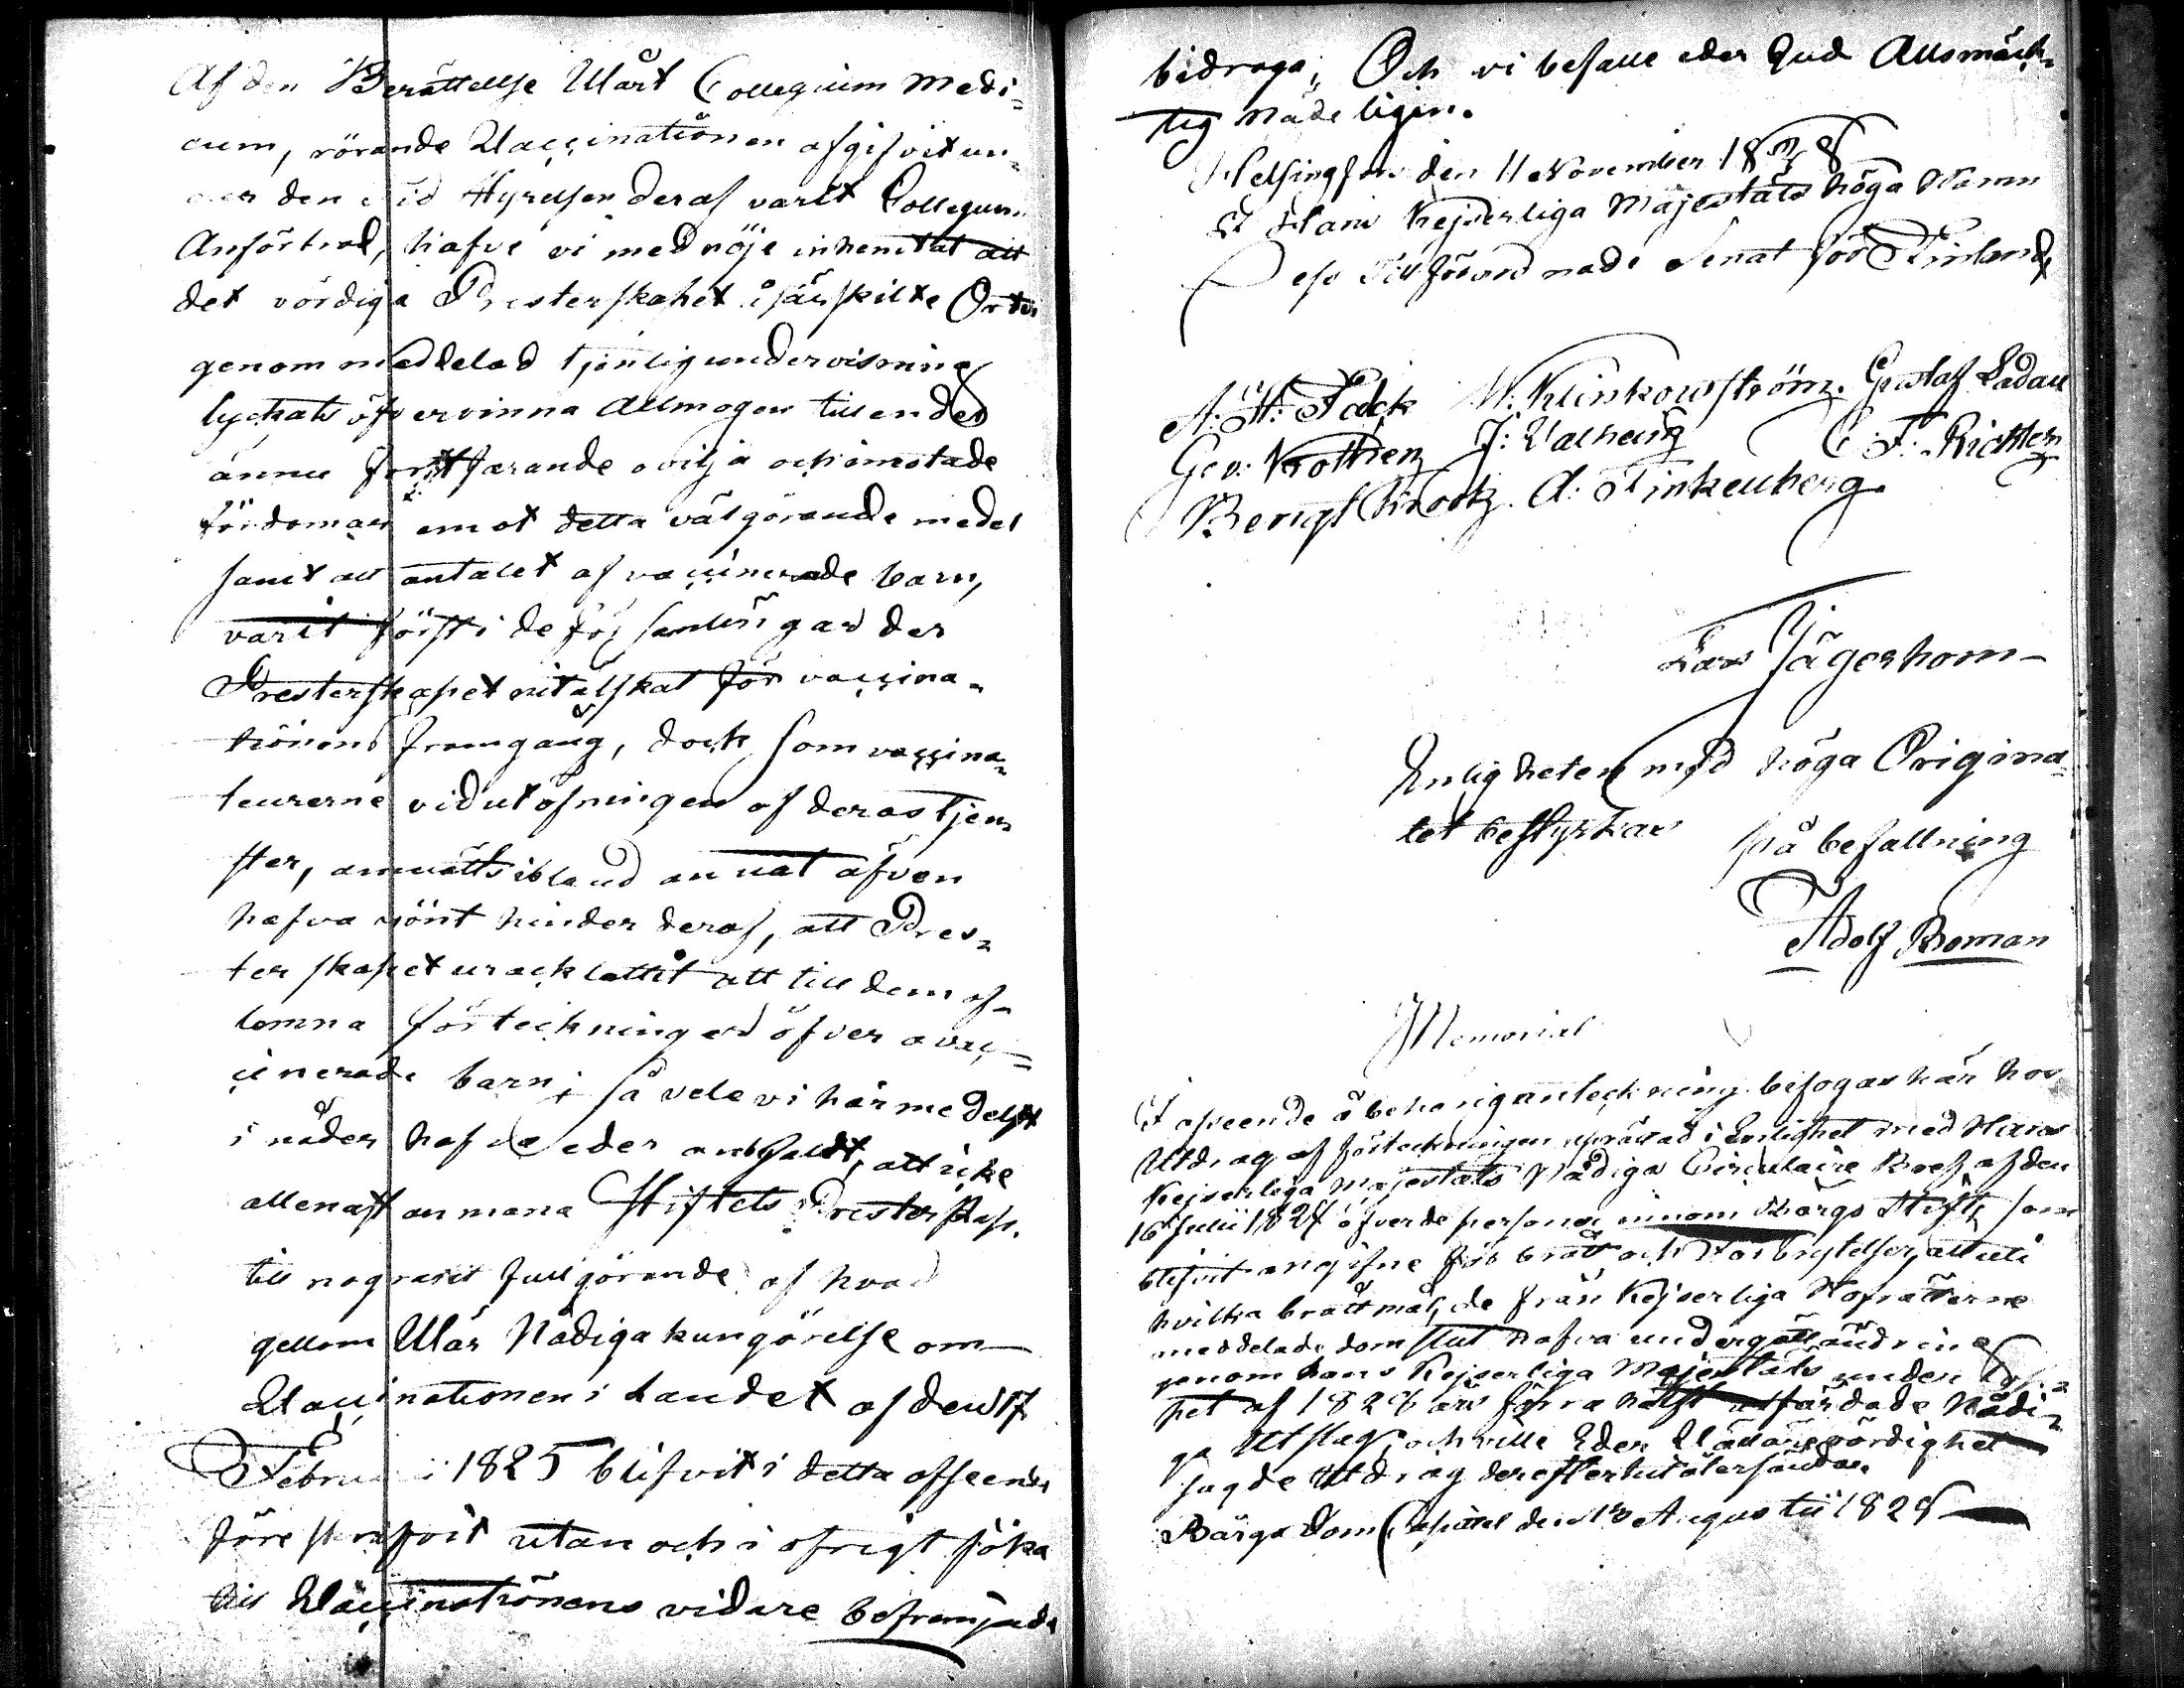 Af den Berättellse Wårt Collegium Medi=
cum, rörande Vaccinationen afgifvit un=
den tid Styrelsen deraf varit Collegium
Anförtrod, hafve vi med nöje inhemtat att
det vördiga Presterskapet i särskilte Orter
genom meddelad tjenlig undervisning
lyckats öfvervinna Allmogen till en del
ännu fortfarande ovilja och inrotade
fördomar emot detta välgörande medel
samt att antalet af vaccinerade barn,
varit först i de församlingar der
Presterskapet nitälskat för vaccina=
tionens framgång, dock som vaccina=
teurerne vid utöfningen af deras tjen=
ster, anmält ibland annat äfven
hafva rönt hinder deraf, att Pres=
terskapet uracklåttit att till dem af=
lemna förteckningar öfver ovac=
cinerade barn; så vele vi härmedelst
i nåder hafva eder anbefaldt, att icke
allenast anmana Stiftets Presterskap.
till nograst fullgörande af hvad
gellom Wår Nådiga kungörelse om
Vaccinationen i landet af den 17
Februarii 1825 blifvit i detta afseende
föreskrifvit utan och i öfrigt söka
till Vaccinationens vidare befremjande
bidraga; Och vi befalle eder Gud Allsmäck=
tig Nådeligen.
Helsingfors den 11 November 1828
I Hans Kejserliga Majestäts höga Namn
Dess Tillförordnade Senat för Finland
A. H. Falck W. Klinkowström. Gustaf Ladau
J: Walheim C. F. Richter
Bengt Krook. A:
Lars Jägerhorn
Enligheten med höga Origina=
let bestyrkar
på befallning
Adolf Boman
Memorial
I afseende å behörig anteckning bifogas här hos
Utdrag af förteckningen upprättad i Enlighet med Hans
Kejserliga Majestäts Nådiga Circulaire Bref af den
16 Julii 1827 öfver de personer innom Borgo Stift, som
blifvit angifne för brått och förbrytelser, att uti
hvilka bråttmål, de från Kejserliga Hofrätterne
meddelade domslut hafva undergått ändring
genom hans Kejserliga Majestäts under lop=
pet af 1828 års förra hälft utfärdade Nådi=
ga Utslag och ville Eder Wällärevördighet
sagde Utdrag derefter hit återsända.
Borgo Dom Capittel den Augustii 1828